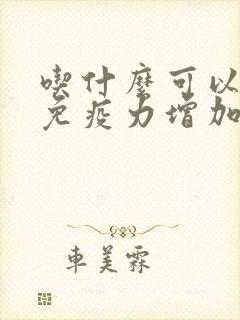 喫什麼可以
免疫力增加
車美霖